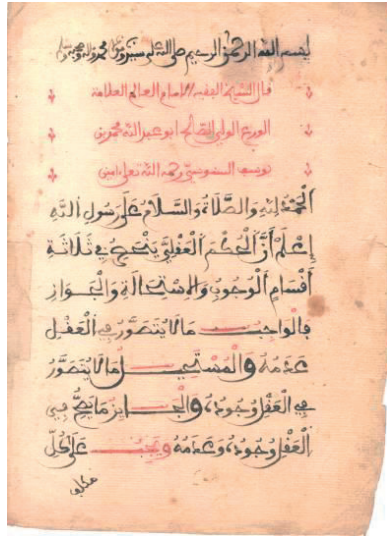 بسم الله الرحمن الرحيم صلى الله على سيدنا ومولانا محمد وآله وصحبه وسلم
قال الشيخ الفقيه الإمام العالم العلامة
الورع الولي الصالح أبو عبد الله محمد بن
يوسف السنوسي رحمه الله تعلى آمين
اَلْحَمْدُ لِلهِ وَالصَّلَاةُ وَالسَّلَامُ عَلَى رَسُولِ اللَّهِ
إِعْلَمْ أَنَّ الْحُكْمَ الْعَقْلِيَّ يَنْحَصِرُ فِي ثَلَاثَةِ
أَقْسَامٍ الْوُجُوبِ وَالِاسْتِحَالَةِ وَالْجَوَازِ
فَالْوَاجِبُ مَا لَا يُتَصَوَّرُ فِي الْعَقْلِ
عَدَمُهُ وَالْمُسْتَحِيلُ مَا لَا يُتَصَوَّرُ
فِي الْعَقْلِ وُجُودُهُ وَالْجَائِزُ مَا يَصِحُّ فِي
الْعَقْلِ وُجُودُهُ وَعَدَمُهُ وَيَجِبُ عَلَى كُلِّ
مكلف